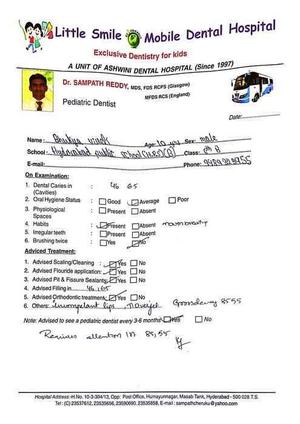 Little Smile Mobile Dental Hospital
Exclusive Dentistry for kids
A UNIT OF ASHWINI DENTAL HOSPITAL (Since 1997)
Dr. SAMPATH REDDY, MDS, FDS RCPS (Glasgow)
MFDS RCS (England)
Pediatric Dentist
Date:
Name: Age: 10 yrs Sex: male
School: Hyderabad public school Class: 5th A
E-mail: Phone:
On Examination:
1. Dental Caries in : 46 65
(Cavities)
2. Oral Hygiene Status : Good Average Poor
3. Physiological : Present Absent
Spaces
4. Habits : Present Absent mouth breathing
5. Irregular teeth : Present Absent
6. Brushing twice : Yes No
Adviced Treatment:
1. Advised Scaling/Cleaning : Yes No
2. Advised Flouride application: Yes No
3. Advised Pit & Fissure Sealants: Yes No
4. Advised Filling in 46, 65
5. Advised Orthodontic treatment: Yes No
6. Others: Incompetent lips 85 55
Note: Advised to see a pediatric dentist every 3-6 months: Yes No
Requires attention in 85, 55
Hospital Address: H.No. 10-3-304/13, Opp. Post Office, Humayunnagar, Masab Tank, Hyderabad - 500 028 T.S.
Tel: (C) 23537612, 23535656, 23590690, 23535858, E-mail: sampathcheruku@yahoo.com